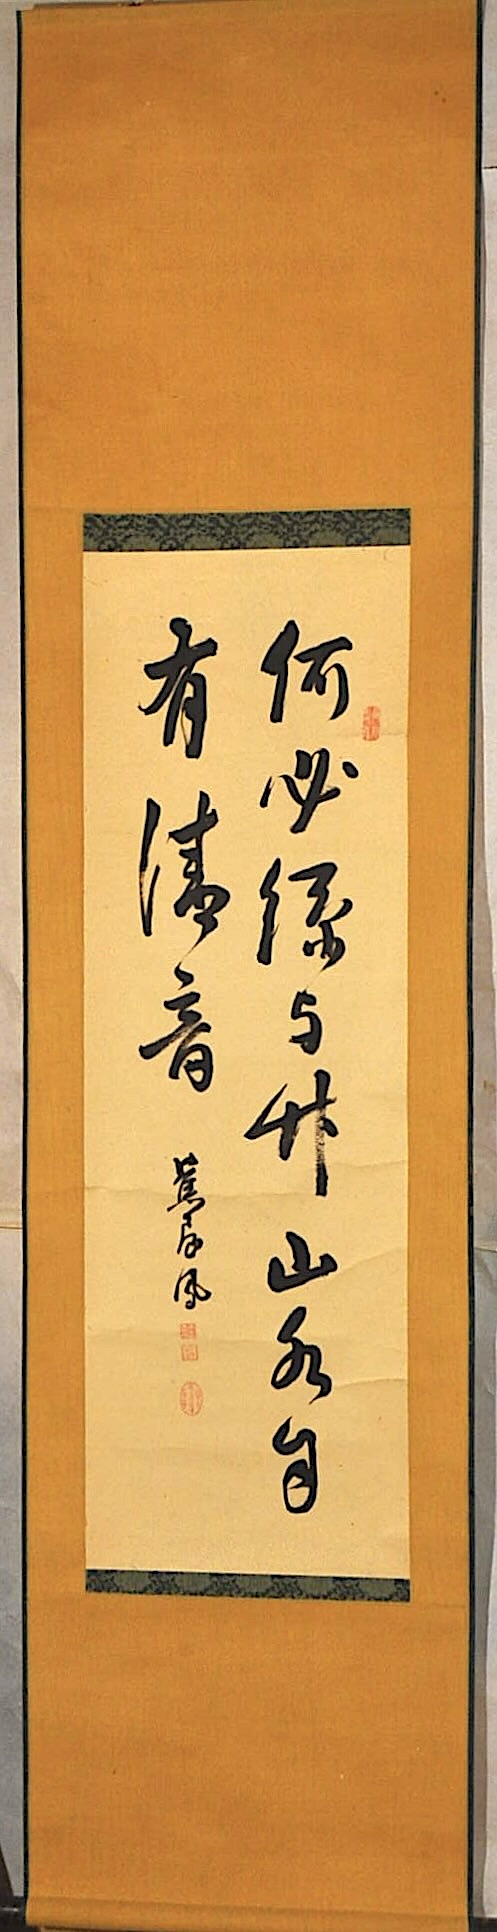 何必絲与竹山水自
有清音
蕉